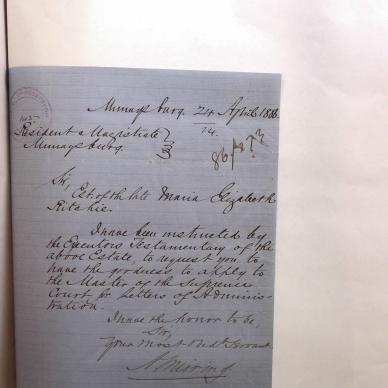 Murraysburg 24 April 1886.
14.
Resident Magistrate
Murraysburg.
Sir,
Est. of the late Maria Elizabeth
Ritchie.
I have been instructed by
the Executors Testamentary of the
above Estate, to request you to
have the goodness to apply to
the Master of the Supreme
Court for Letters of Adminis-
tration.
I have the honor to be,
Sir,
Your most Obdt Servant